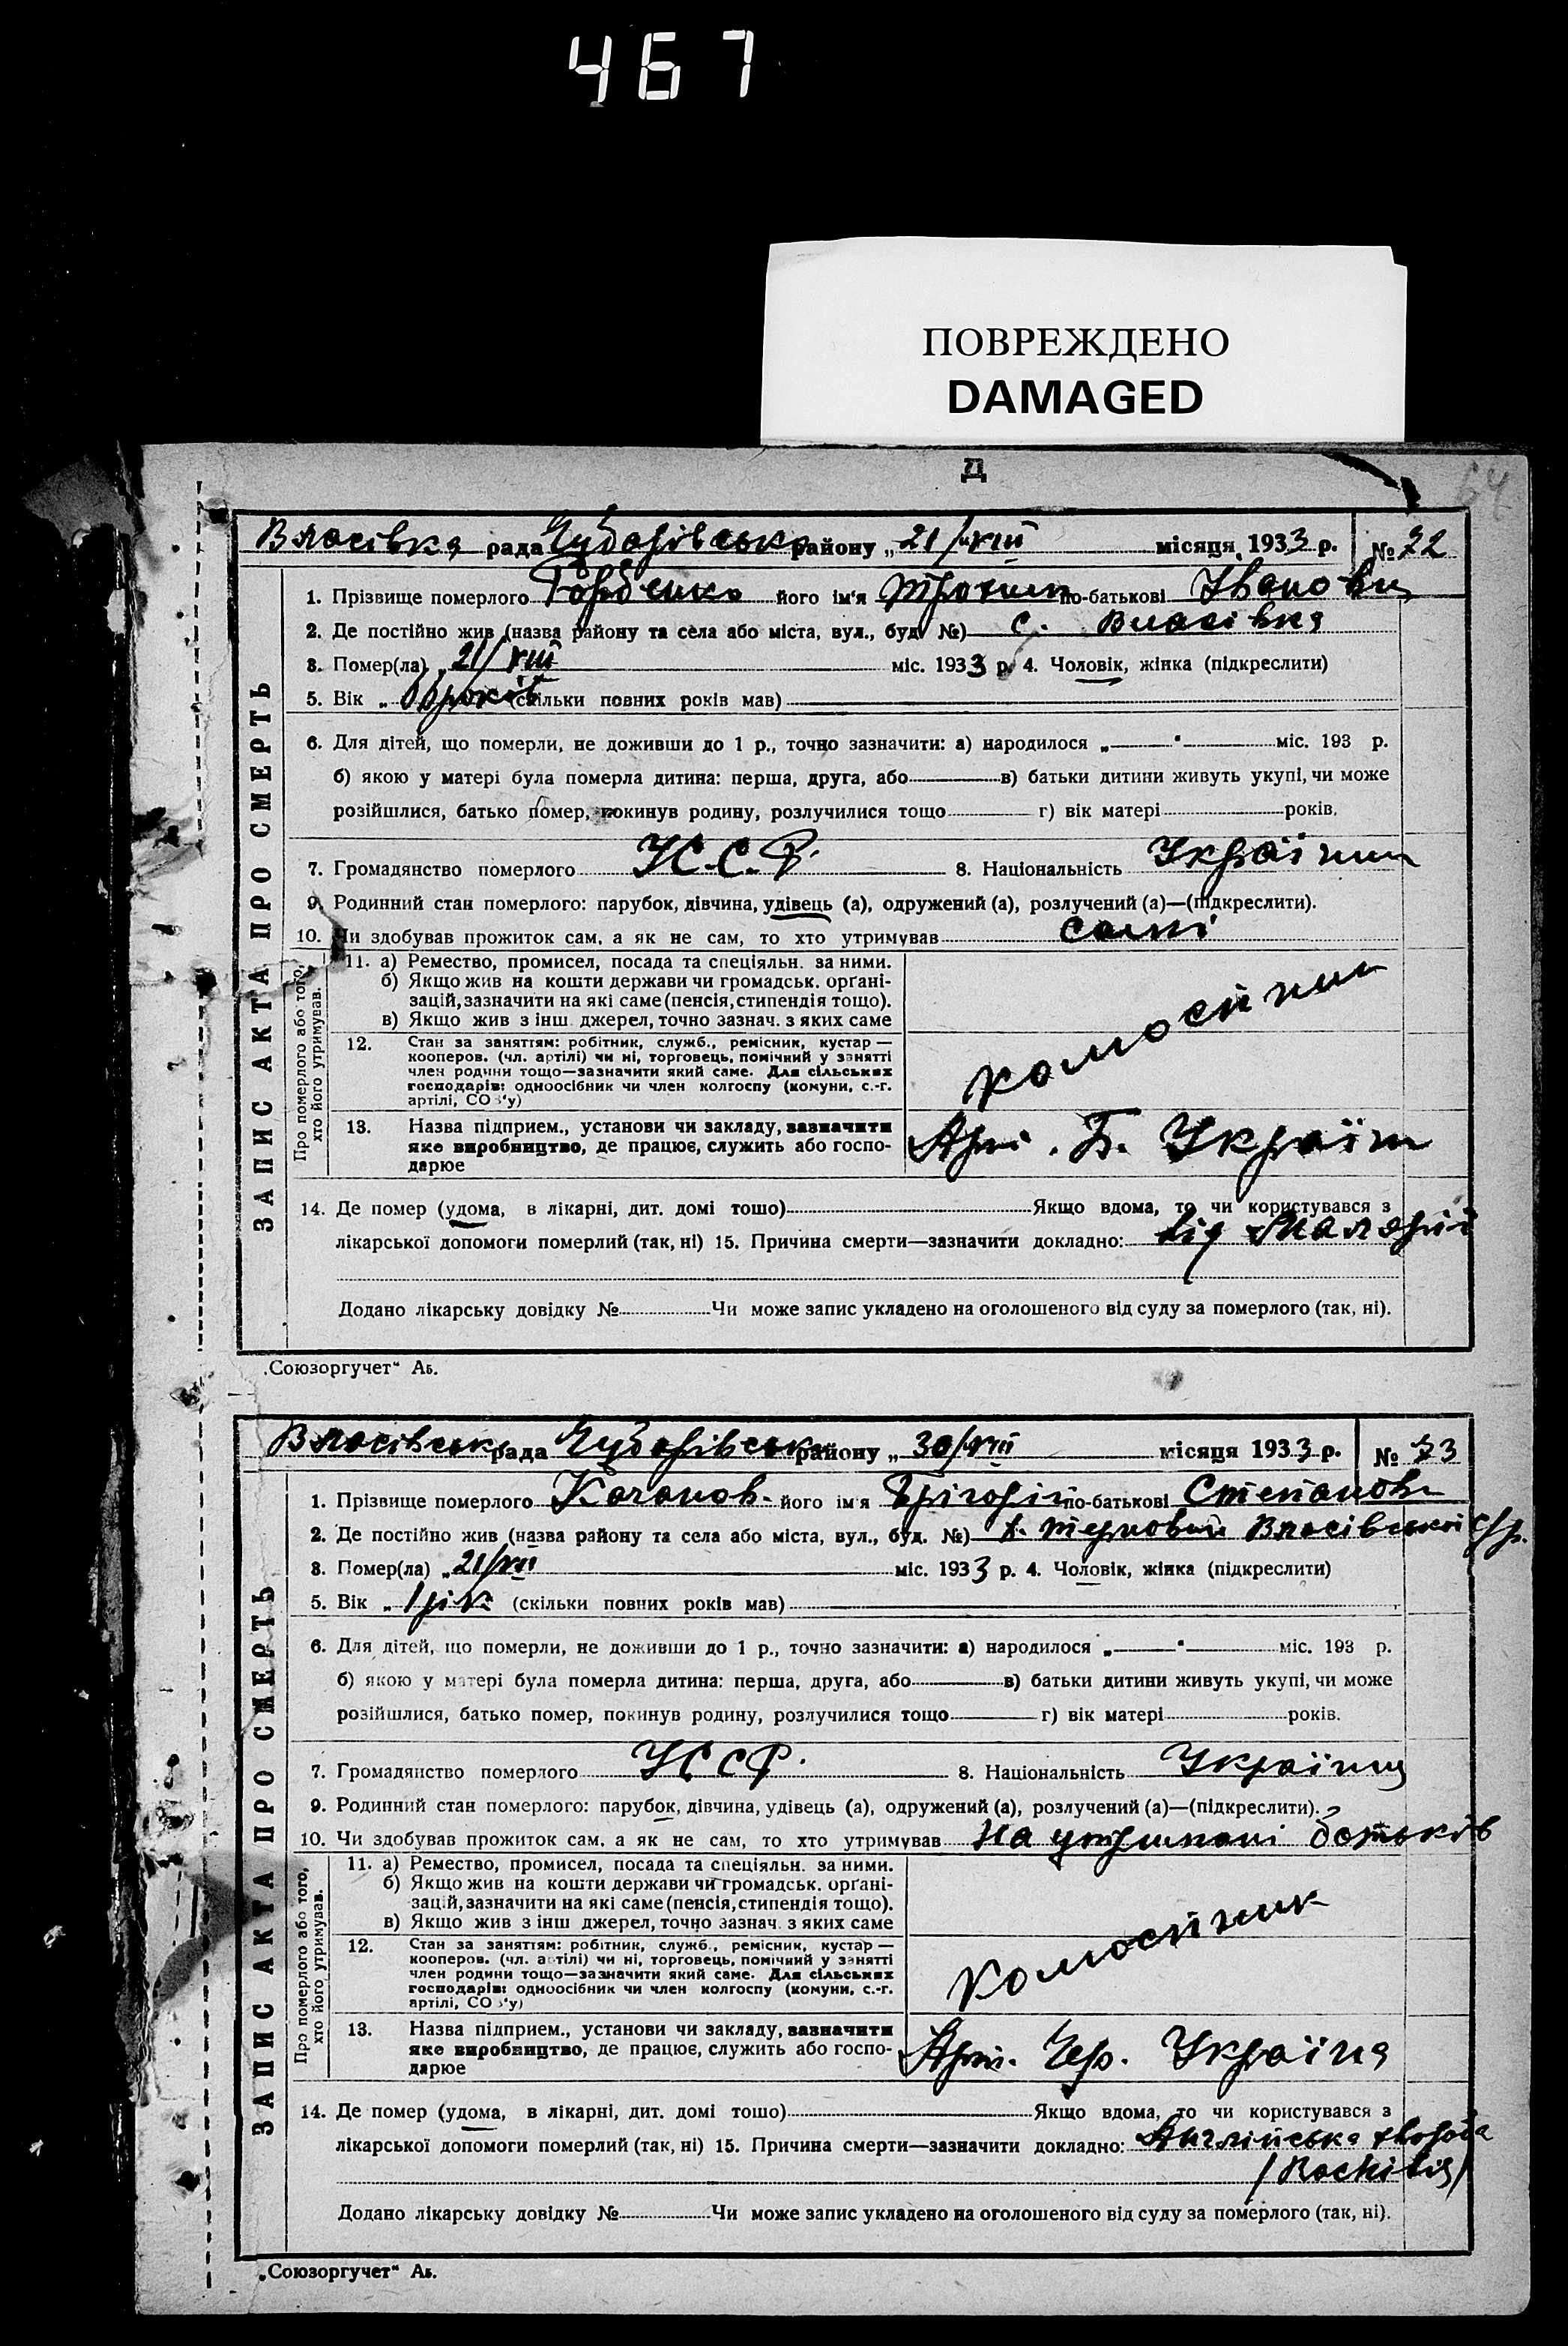 467
ПОВРЕЖДЕНО
DAMAGED
Д
64
ЗАПИС АКТА ПРО СМЕРТЬ
Власівка рада Чубарівська району „21/VIII місяця 1933 р. № 72
1. Прізвище померлого Горбенко його ім'я Трохим по-батькові Іванови
2. Де постійно жив (назва району та села або міста, вул., буд. №) с. Власівка
3. Помер(ла) „21/VIII міс. 1933 р. 4. Чоловік, жінка (підкреслити)
5. Вік „ років (скільки повних років мав)
6. Для дітей, що померли, не доживши до 1 р., точно зазначити: а) народилося „ " міс. 193 р.
б) якою у матері була померла дитина: перша, друга, або в) батьки дитини живуть укупі, чи може
розійшлися, батько помер, покинув родину, розлучилися тощо г) вік матері років.
7. Громадянство померлого УС.С.Р. 8. Національність Україниц
9. Родинний стан померлого: парубок, дівчина, удівець (а), одружений (а), розлучений (а)—(підкреслити).
10. Чи здобував прожиток сам, а як не сам, то хто утримував самі
Про померлого або того, хто його утримував.
11. а) Ремество, промисел, посада та спеціяльн. за ними.
б) Якщо жив на кошти держави чи громадськ. орґані-
зацій, зазначити на які саме (пенсія, стипендія тощо).
в) Якщо жив з інш. джерел, точно зазнач. з яких саме
12. Стан за заняттям: робітник, служб., ремісник, кустар —
кооперов. (чл. артілі) чи ні, торговець, помічний у занятті
член родини тощо—зазначити який саме. Для сільських
господарів: одноосібник чи член колгоспу (комуни, с.-г.
артілі, СОЗ'у)
13. Назва підприєм., установи чи закладу, зазначити
яке виробництво, де працює, служить або госпо-
дарює
Арті. Україн
14. Де помер (удома, в лікарні, дит. домі тощо) Якщо вдома, то чи користувався з
лікарської допомоги померлий (так, ні) 15. Причина смерти—зазначити докладно: від малярії
Додано лікарську довідку № Чи може запис укладено на оголошеного від суду за померлого (так, ні).
„Союзоргучет" Аб.
ЗАПИС АКТА ПРО СМЕРТЬ
Власівська рада Чубарівська району „30/VIII місяця 1933 р. № 73
1. Прізвище померлого Качанов його ім'я Грігорій по-батькові Степанови
2. Де постійно жив (назва району та села або міста, вул., буд. №) х. Терновий Власівської с/р.
3. Помер(ла) „21/VIII міс. 1933 р. 4. Чоловік, жінка (підкреслити)
5. Вік „ 1 рік (скільки повних років мав)
6. Для дітей, що померли, не доживши до 1 р., точно зазначити: а) народилося „ " міс. 193 р.
б) якою у матері була померла дитина: перша, друга, або в) батьки дитини живуть укупі, чи може
розійшлися, батько помер, покинув родину, розлучилися тощо г) вік матері років.
7. Громадянство померлого УССР. 8. Національність Україниц
9. Родинний стан померлого: парубок, дівчина, удівець (а), одружений (а), розлучений (а)—(підкреслити).
10. Чи здобував прожиток сам, а як не сам, то хто утримував на утримані батьків
Про померлого або того, хто його утримував.
11. а) Ремество, промисел, посада та спеціяльн. за ними.
б) Якщо жив на кошти держави чи громадськ. орґані-
зацій, зазначити на які саме (пенсія, стипендія тощо).
в) Якщо жив з інш джерел, точно зазнач. з яких саме
12. Стан за заняттям: робітник, служб., ремісник, кустар —
кооперов. (чл. артілі) чи ні, торговець, помічний у занятті
член родини тощо—зазначити який саме. Для сільських
господарів: одноосібник чи член колгоспу (комуни, с.-г.
артілі, СОЗ'у)
13. Назва підприєм., установи чи закладу, зазначити
яке виробництво, де працює, служить або госпо-
дарює
Арт. Чер. Україна
14. Де помер (удома, в лікарні, дит. домі тощо) Якщо вдома, то чи користувався з
лікарської допомоги померлий (так, ні) 15. Причина смерти—зазначити докладно: Англійська хвороба
Додано лікарську довідку № Чи може запис укладено на оголошеного від суду за померлого (так, ні).
„Союзоргучет" Аб.